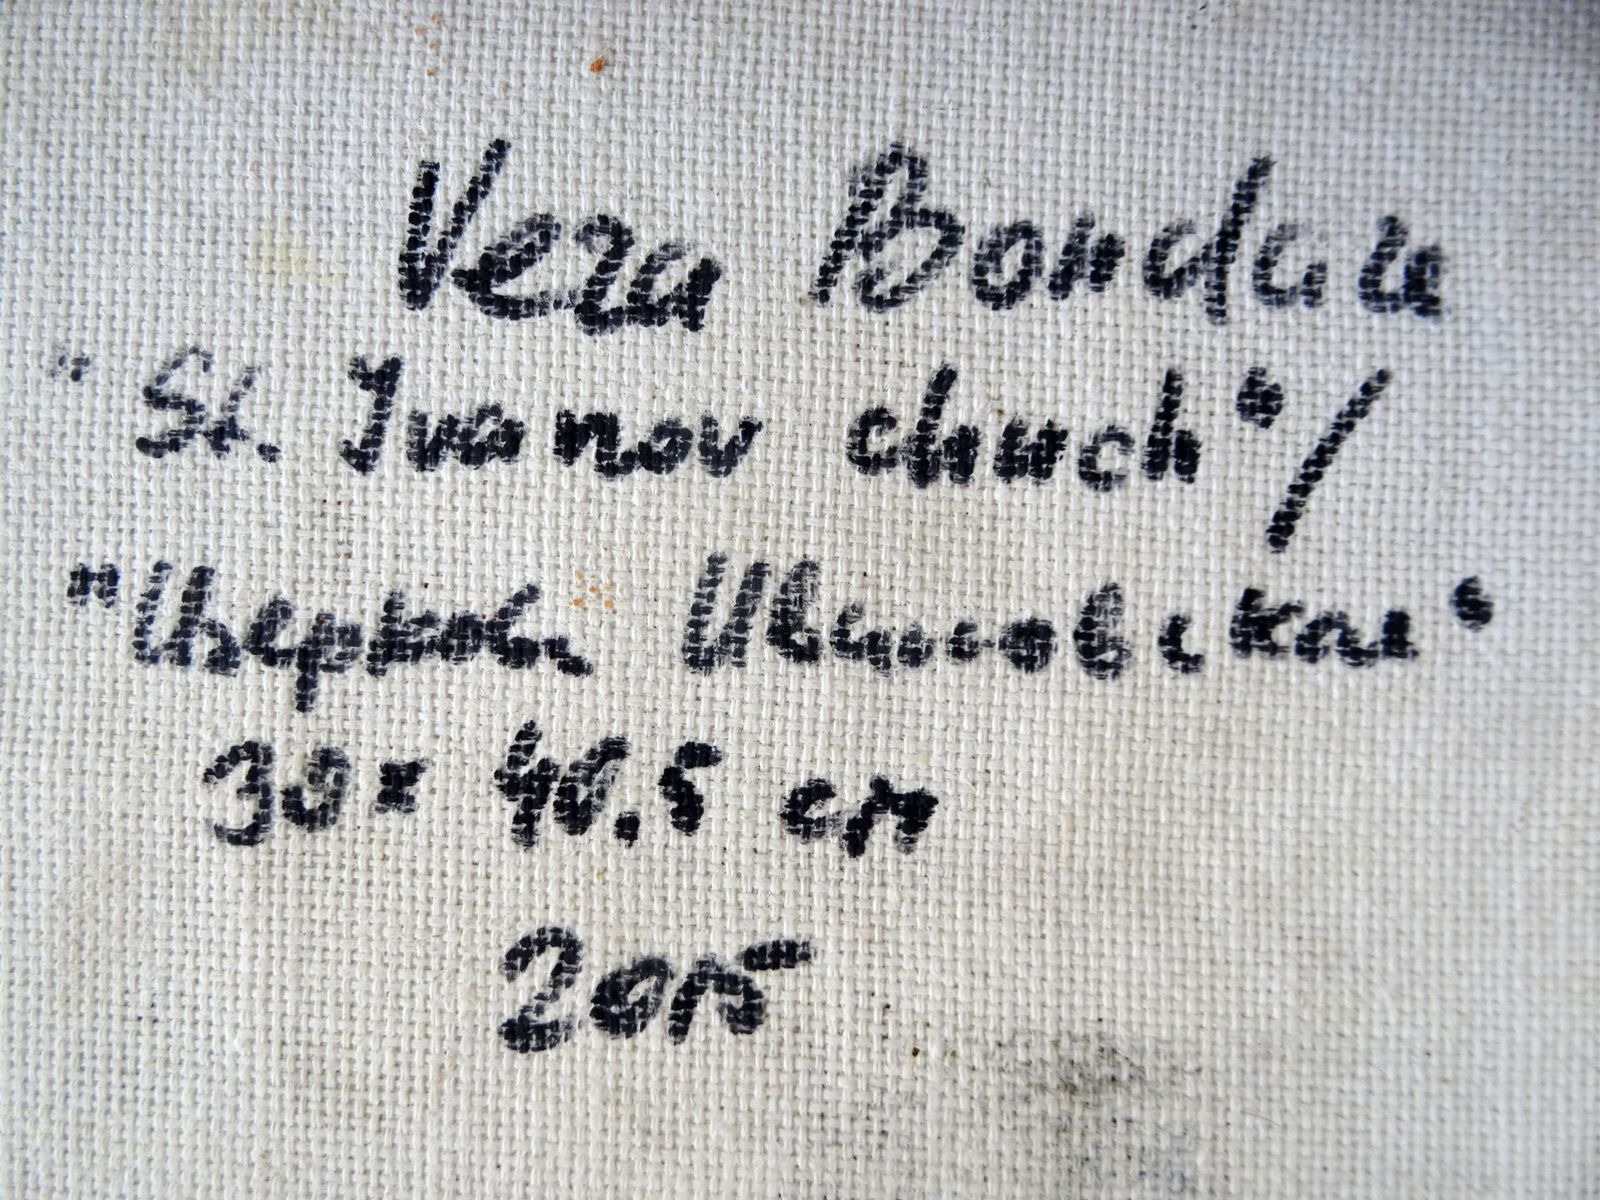 Vera Bondar
"St. Ivanov chuch"/
"Церковь Ивановская"
30x 40.5 cm
2015